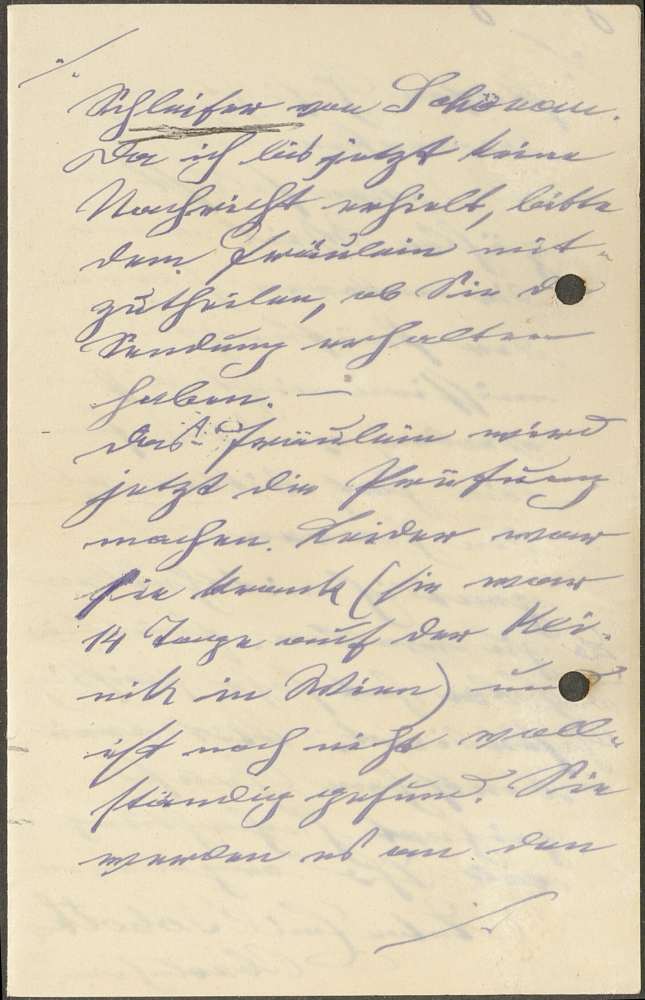 ./.
Schleifer von Schönau.
Da ich bis jetzt keine
Nachricht erhielt, bitte
dem Fräulein mit-
zutheilen, ob Sie die
Sendung erhalten
haben. —
Das Fräulein wird
jetzt die Prüfung
machen. Leider war
sie krank (sie war
14 Tage auf der Kli-
nik in Wien) und
ist noch nicht voll-
ständig gesund. Sie
werden es an den
./.